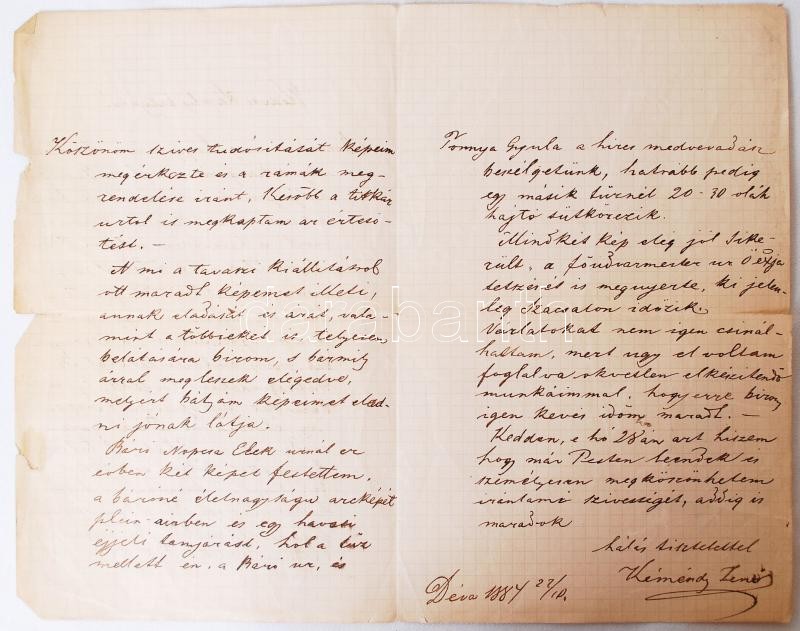 Köszönöm szives tudósitását képeim
megérkezte és a rámák meg-
rendelése iránt, Később a titkár
urtol is megkaptam az értesi-
tést. —
A mi a tavaszi kiállitásrol
ott maradt képeimet illeti,
annak eladását is árát, vala-
mint a többieket is, teljesen
belátására bizom, s bármily
árral megleszek elégedve,
melyért bátyám képeimet elad-
ni jónak látja.
Báró Nopcsa Elek urnál ez
évben két képet festettem,
a báróné életnagyságu arcképét
plein-airben és egy havasi
éjjeli tanyázást, hol a tüz
mellett én, a Báró ur, és
Tornya Gyula a hires medvevadász
beszélgetünk, hatrább pedig
egy másik tüznél 20-30 oláh
hajtó sütkörezik.
Mindkét kép elég jól sike-
rült, a főudvarmester ur Ő exja
tetszését is megnyerte, ki jelen-
leg Szacsalon időzik.
Vázlatokat nem igen csinál-
haltam, mert ugy el voltam
foglalva okvetlen elkészitendő
munkáimmal, hogy erre bizony
igen kevés időm maradt. —
Kedden, e hó 28án azt hiszem
hogy már Pesten leendek is
személyesen megköszönhetem
irántami szivességét, addig is
maradok
hálás tisztelettel
Kéméndy Jenő
Déva 1884 22/10.
darabanth